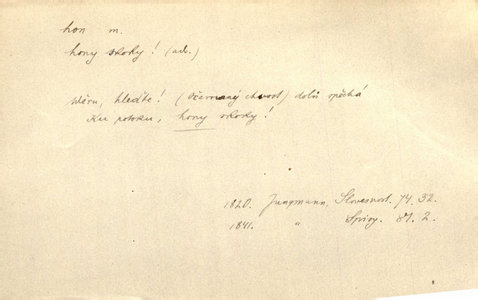 hon m.
hony skoky! (adv.)
Wěru, hleďte! (Očernaný chwost) dolů spěchá
Ku potoku, hony skoky!
1820. Jungmann, Slovesnost. 74. 32.
1841. " Spisy. 87. 2.